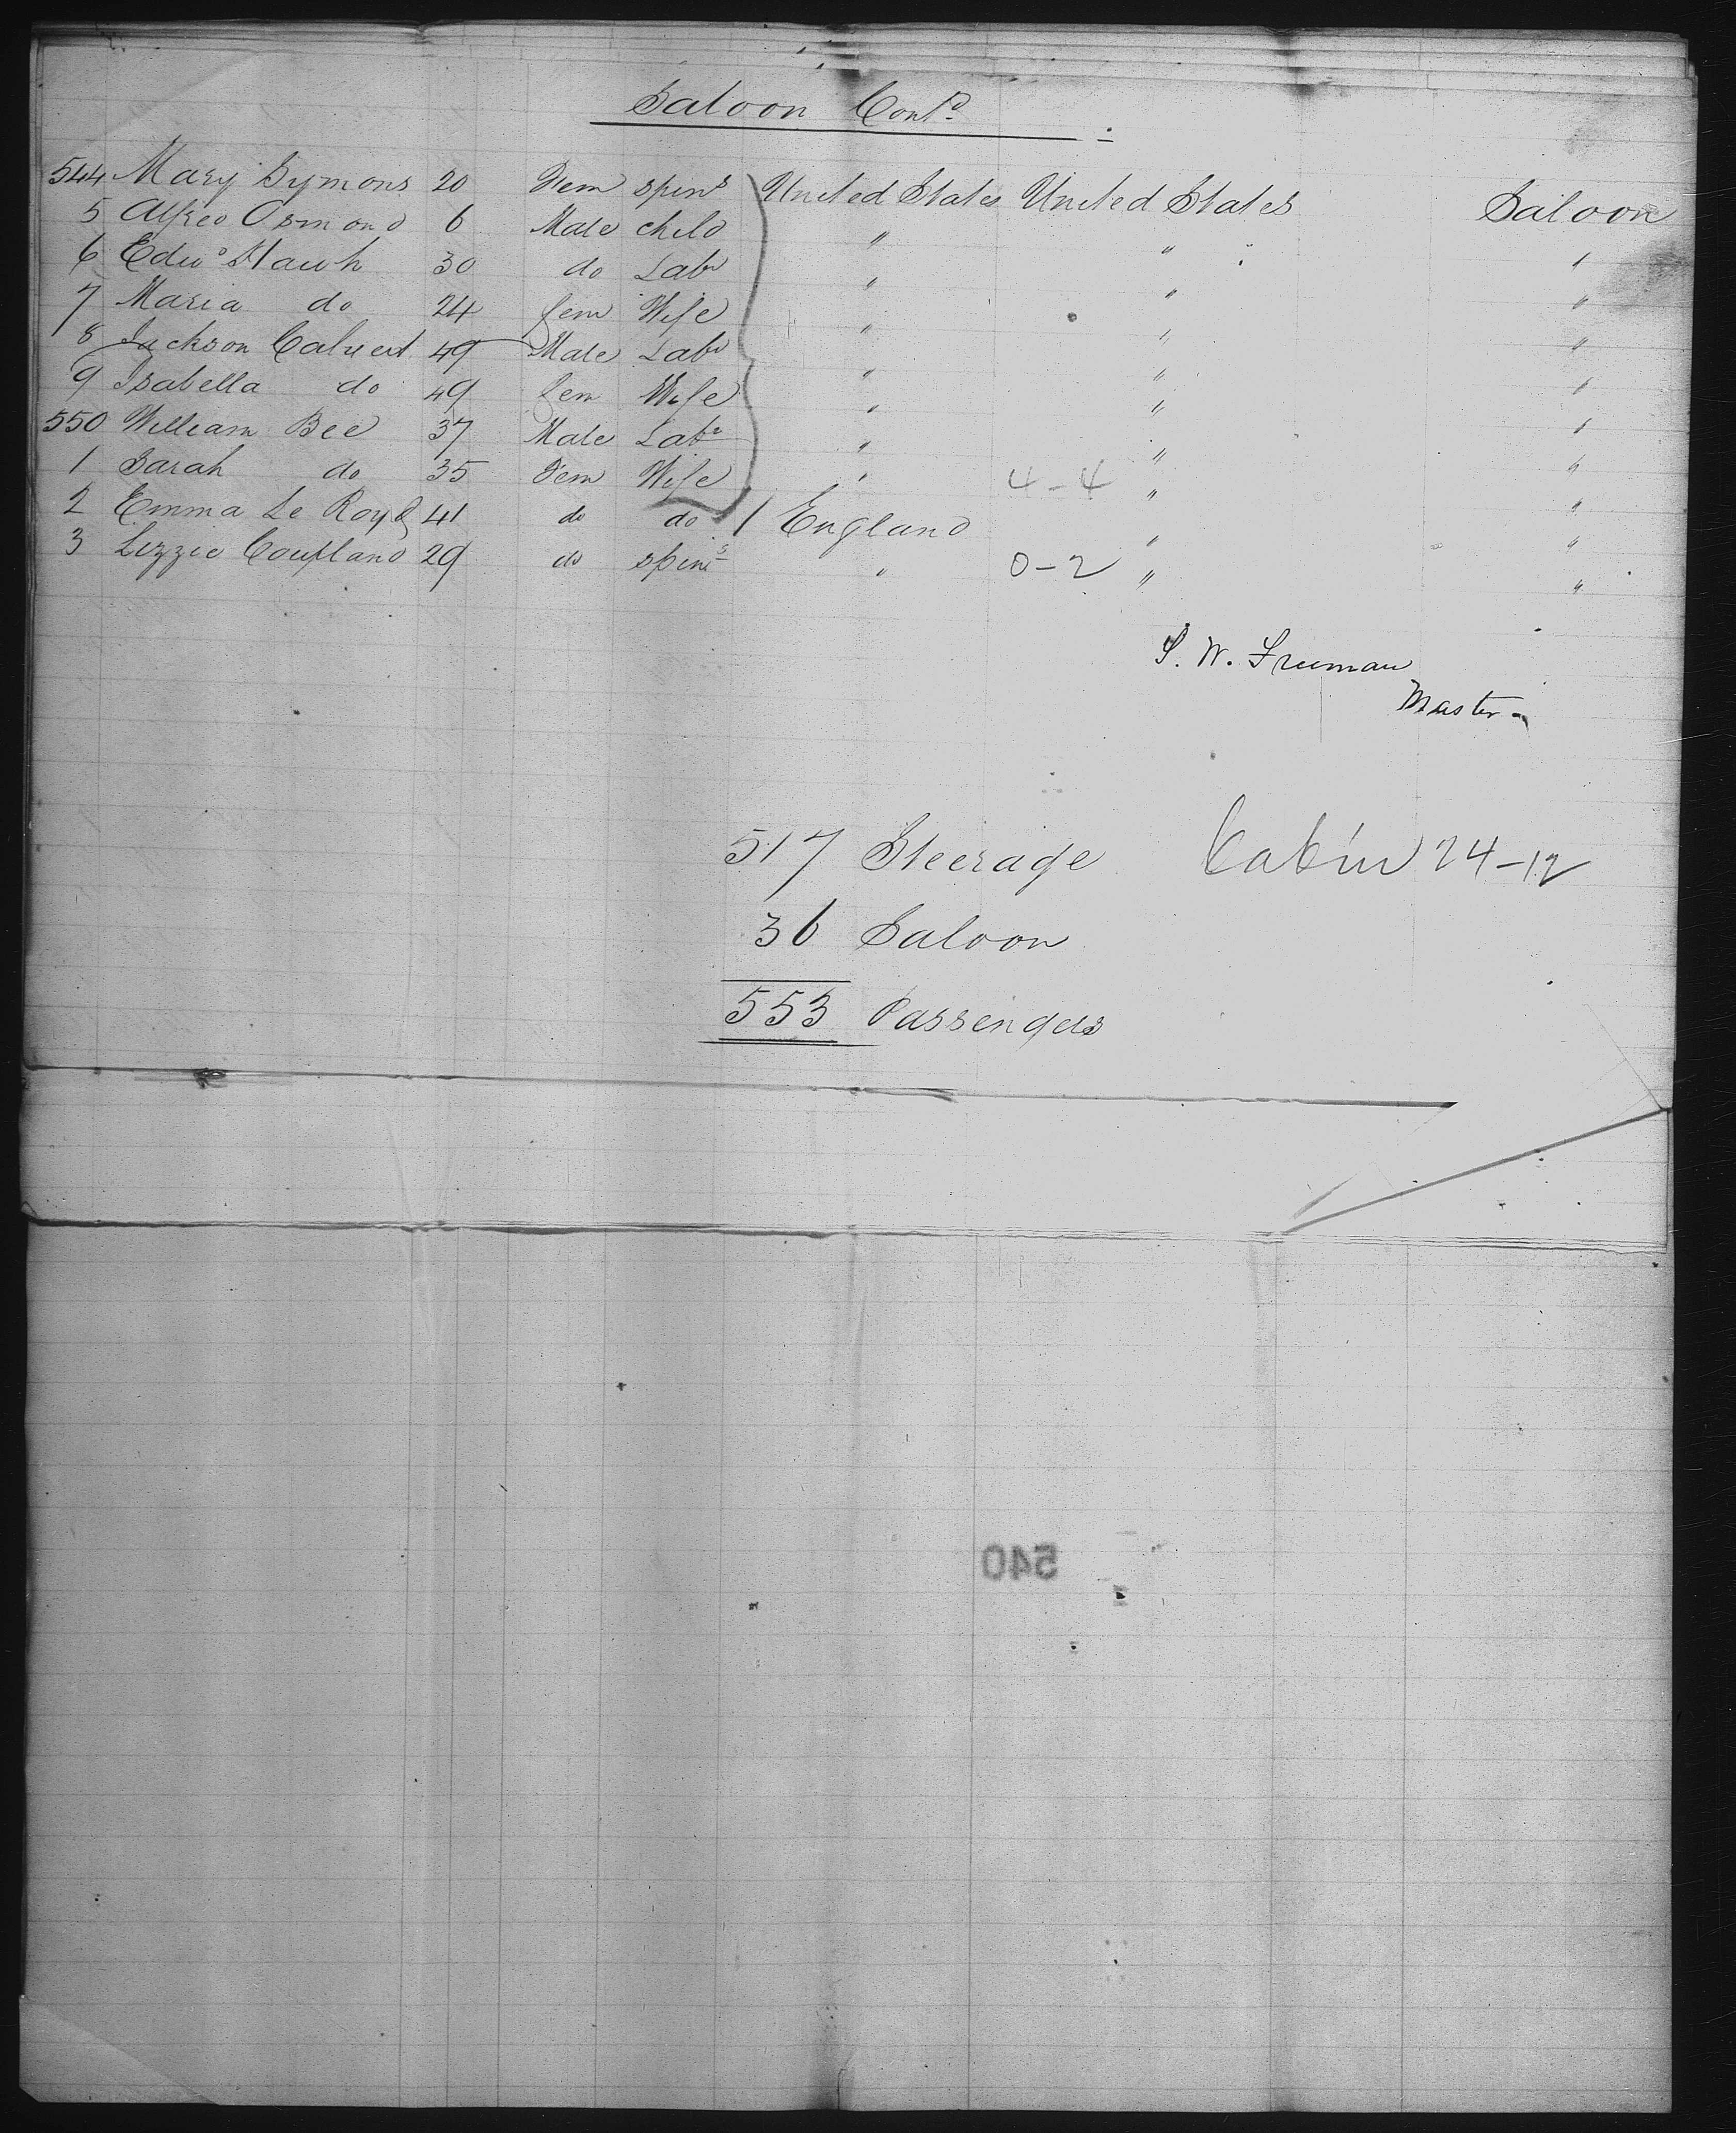 Saloon Cont.d
544 Mary Symons 20 Fem spin.s United States United States Saloon
5 Alfred Osmond 6 Male child " " "
6 Edw.d 30 do Lab.r " " "
7 Maria do 24 fem Wife " " "
8 Jackson Calvert 49 Male Lab.r " " "
9 Isabella do 49 fem Wife " " "
550 William Bee 37 Male Lab.r " " "
1 Sarah do 35 Fem Wife " 4-4 " "
2 Emma Le Royd 41 do do 1 England " "
3 Lizzie Coupland 29 do spin.s " 0-2 " "
S. W. Freeman
Master
517 Steerage Cabin 24-12
36 Saloon
553 Passengers
540